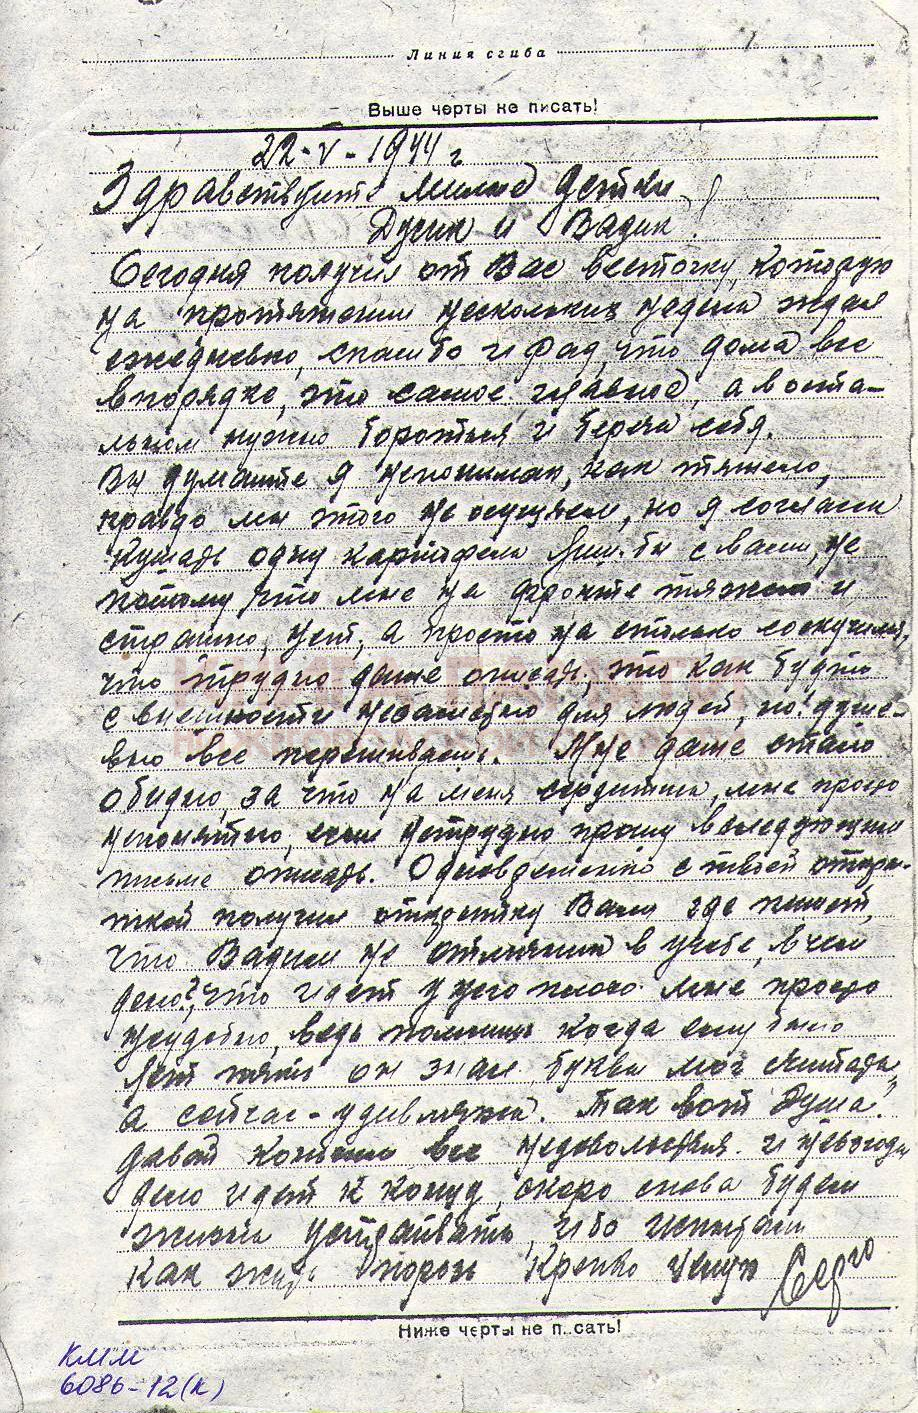 Линия сгиба
Выше черты не писать!
22-V-1944 г
Здравствуйте милые детки
Дусик и Вадик!
Сегодня получил от Вас весточку, которую
на протяжении нескольких недель ждал
ежедневно, спасибо и рад, что дома все
в порядке, это самое главное, а в оста-
льном нужно бороться и беречь себя.
Вы думаете я непонимаю, как тяжело,
правда мы этого не осущаем, но я согласен
кушать одну картофель лиш бы с вами, не
потому что мне на фронте тяжело и
страшно, нет, а просто на столько соскучился,
что трудно даже описать, это как будто
с внешности незаметно для людей, но душе-
вно все переживаешь. Мне даже стало
обидно, за что на меня сердитесь, мне просто
непонятно, если нетрудно прошу в следующем
письме описать. Одновременно с твоей откры-
ткой получил открытку Вали где пишет,
что Вадим не отличник в учебе, в чем
дело?, что идет у него плохо мне просто
неудобно, ведь помнишь когда ему было
лет пять он знал буквы мог читать,
а сейчас - удивляюсь. Так вот Дуся!
давай кончим все недовольствия и невзгоды
дело идет к концу, скоро снова будем
жизнь устраивать, ибо
как жить порознь Крепко целую Серго
Ниже черты не п..сать!
КНИГА ПАМЯТИ
КММ
6086-12(к)